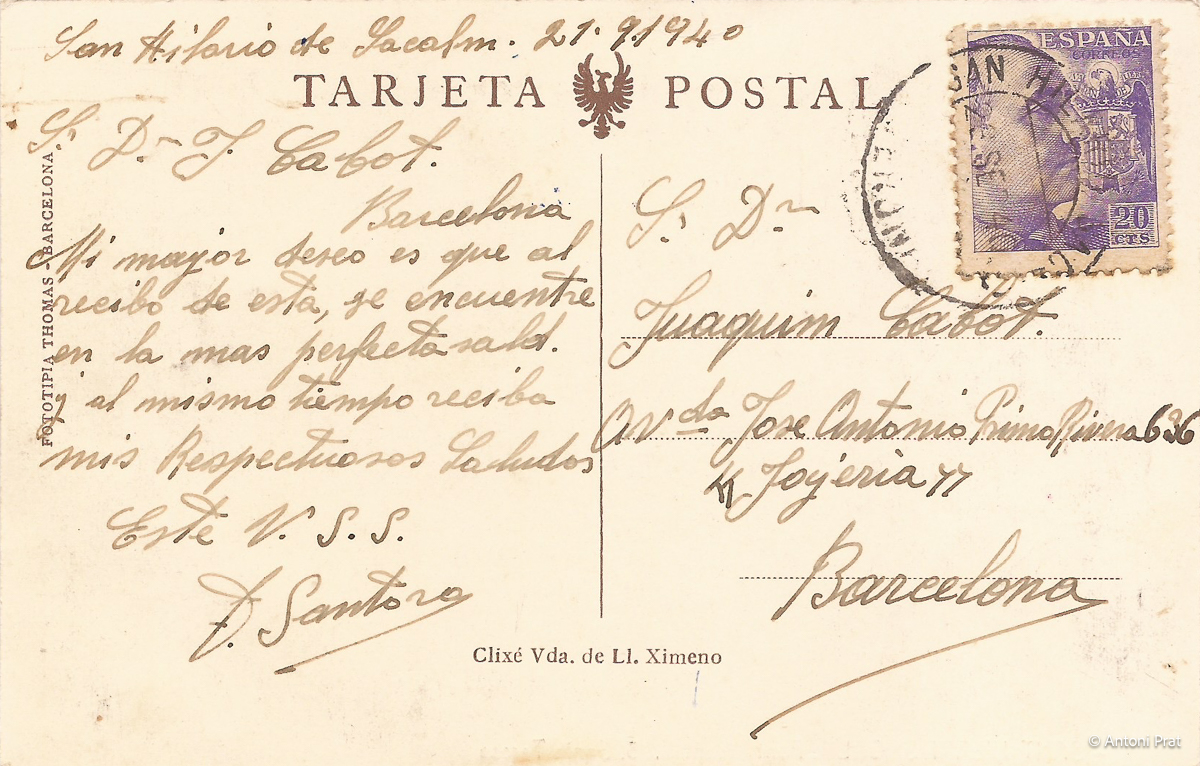 San Hilario de Sacalm. 21.9.1940
TARJETA POSTAL
Sr. Dn J. Cabot.
Barcelona
Mi mayor deseo es que al
recibo de esta, se encuentre
en la mas perfecta sald.
y al mismo tiempo reciba
mis Respectuosos Saludos
Este V. S. S.
Santora
FOTOTIPIA THOMAS - BARCELONA.
Clixé Vda. de Ll. Ximeno
ESPAÑA
CORREOS
20
CTS
SAN HIL
Sr. Dn
Juaquim Cabot.
Avda Jose Antonio Primo Rivera 636
"Joyeria"
Barcelona
© Antoni Prat